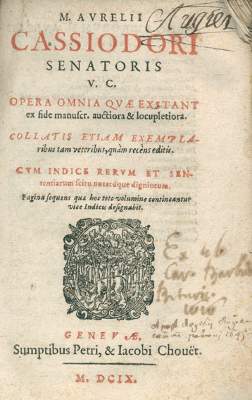 M. AVRELII
CASSIODORI
SENATORIS
V. C.
OPERA OMNIA QVÆ EXSTANT
ex fide manuscr. auctiora & locupletiora.
COLLATIS ETIAM EXEMPLA-
ribus tam veteribus, quàm recèns editis.
CVM INDICE RERVM ET SEN-
tentiarum scitu notatúque digniorum.
Pagina sequens quæ hoc toto volumine contineantur
vice Indicis designabit.
Ex
GENEVÆ,
Sumptibus Petri, & Iacobi Chouët.
M. DCIX.